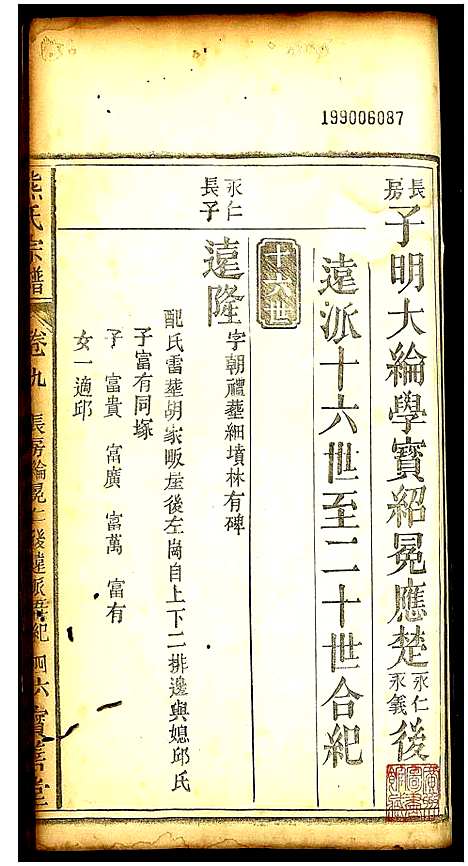 199006087
長房子明大綸學寳紹冕應楚永仁永義後
遠派十六世至二十世合紀
十六世
永仁長子
遠隆字朝禮塟細墳林有碑
配氏雷塟胡家畈屋後左崗自上下二排邊與媳邱氏
子富有同塚
子 富貴 富廣 富萬 富有
女一適邱
熊氏宗譜 卷九 長房綸冕仁後遠派合紀 四六 寳善堂